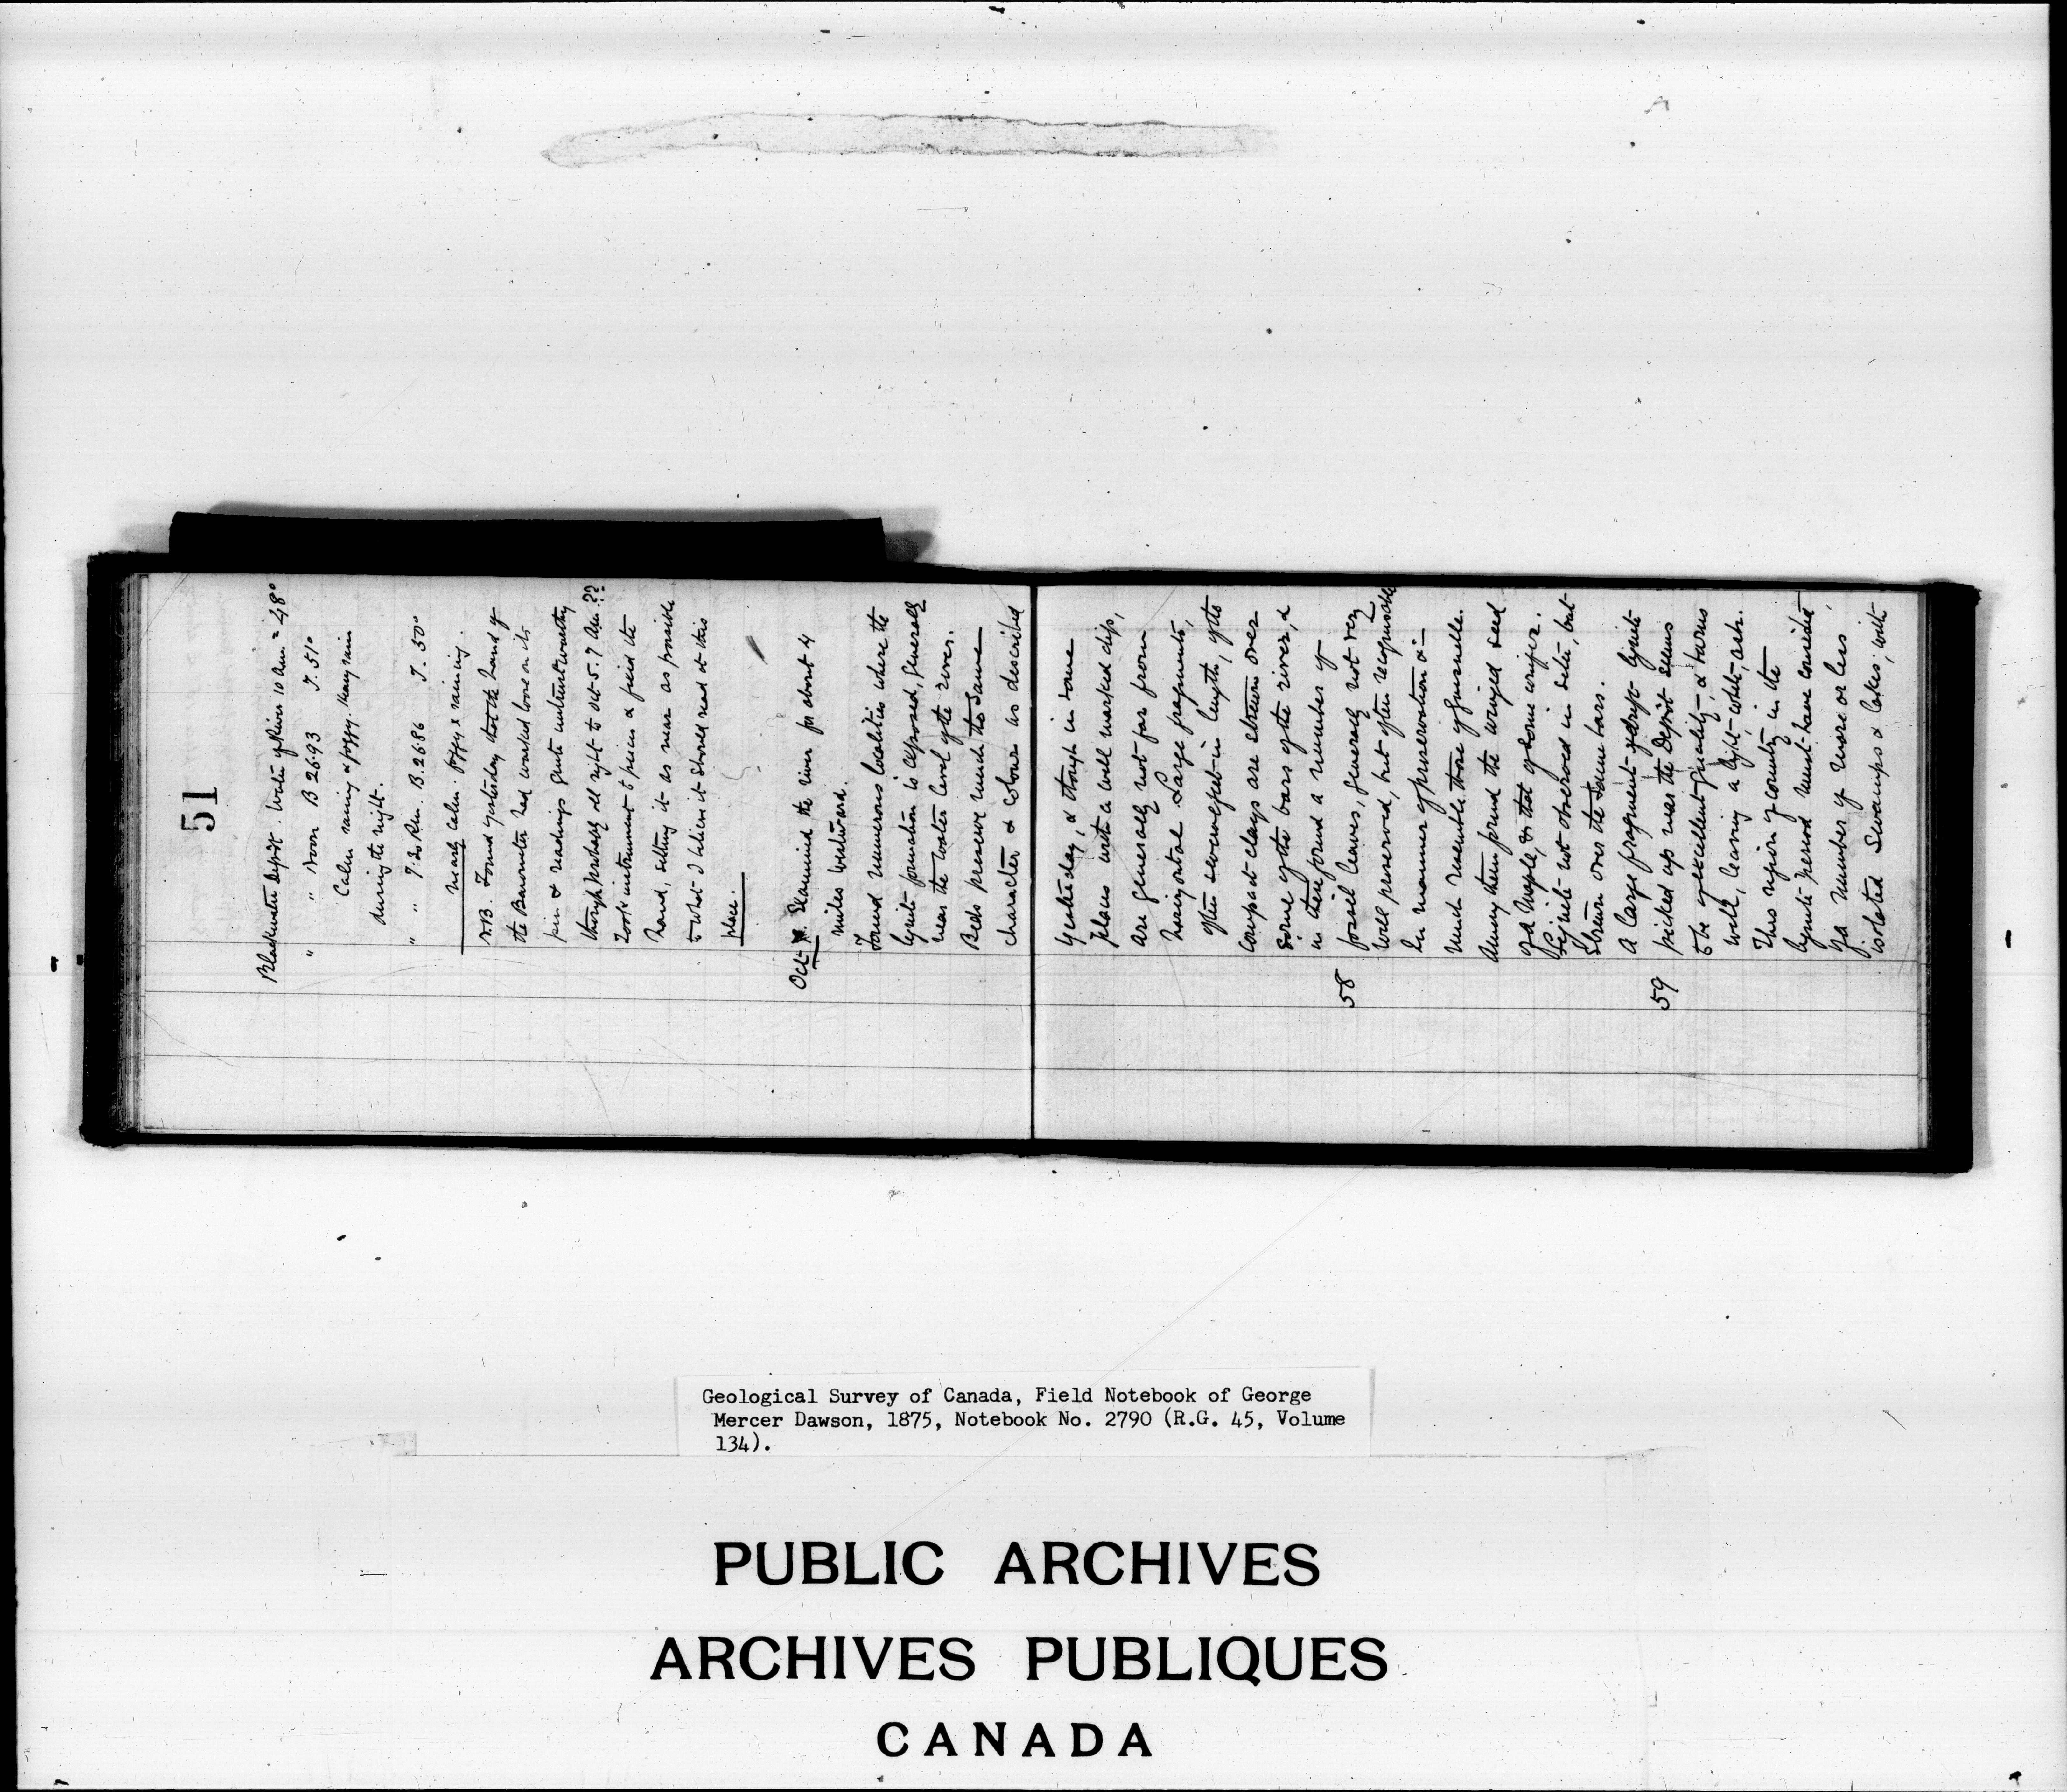 51
Blackwater Depôt. Water of River 10 A.m. = 48°
" " Noon B 2693 T. 51°
Calm raining & foggy. Heavy rain
during the night.
" " 7.20 P.m. B. 2686 T. 50°
nearly calm. foggy & raining.
N.B. Found yesterday that the hand of
the Barometer had worked loose on its
pin & readings quite untrustworthy
though probably all right to Oct 5. 7 A.m. ??
Took instrument to pieces & fixed the
hand, setting it as near as possible
to what I believe it should read at this
place.
Oct Examined the river for about 4
miles westward.
Found numerous localities where the
lignite formation is exposed, generally
near the water level of the river.
Beds preserve much the same
character & colour as described
yesterday, & though in some
places with a well marked dip,
are generally not far from
horizontal. Large fragments,
often several feet in length, of the
compact clays are strewn over
some of the bars of the river, &
in these found a number of
58 fossil leaves, generally not very
well preserved, but often recognisable
In manner of preservation &
much resemble those of Quesnelle.
Among them found the winged seed
of a Maple, & that of some conifer.
Lignite not observed in situ, but
strewn over the same bars.
A large fragment of drift lignite
59 picked up near the Depôt seems
to be of excellent quality, & burns
well, leaving a light white, ash.
This region of country in the
lignite period must have consisted
of a number of more or less
isolated Swamps & lakes, with
Geological Survey of Canada, Field Notebook of George
Mercer Dawson, 1875, Notebook No. 2790 (R.G. 45, Volume
134).
PUBLIC ARCHIVES
ARCHIVES PUBLIQUES
CANADA